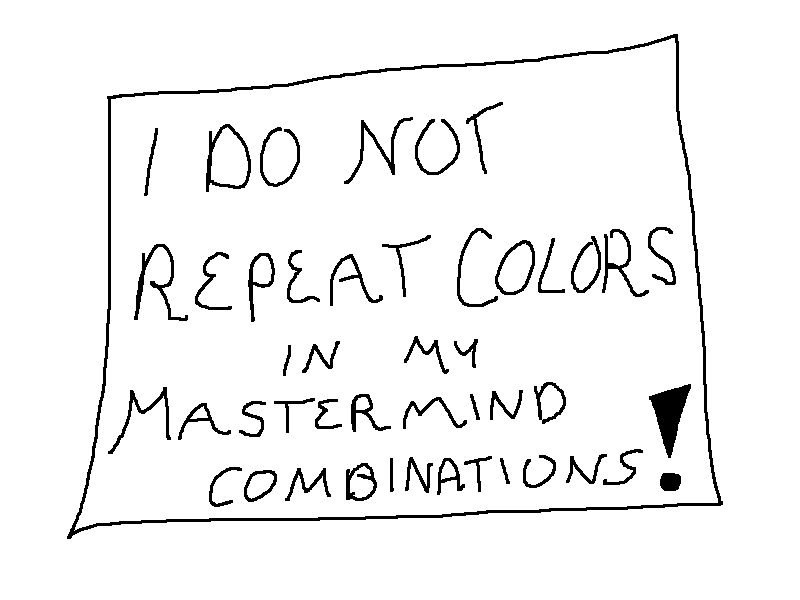 I DO NOT
REPEAT COLORS
IN MY
MASTERMIND
COMBINATIONS!